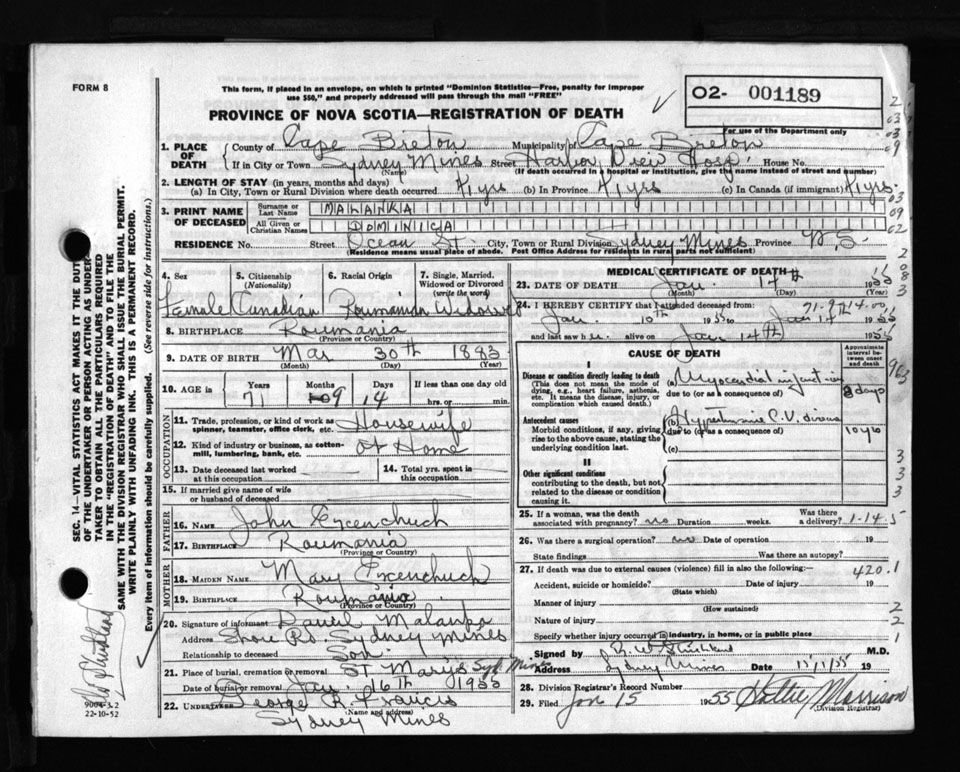 FORM 8
This form, if placed in an envelope, on which is printed "Dominion Statistics—Free, penalty for improper
use $50," and properly addressed will pass through the mail "FREE"
02- 001189
For use of the Department only
PROVINCE OF NOVA SCOTIA—REGISTRATION OF DEATH
1. PLACE OF DEATH
County of Cape Breton Municipality of Cape Breton
If in City or Town Sydney Mines Street Harbor View Hosp. House No.
(Name) (If death occurred in a hospital or institution, give the name instead of street and number)
2. LENGTH OF STAY (in years, months and days)
(a) In City, Town or Rural Division where death occurred 41 yrs (b) In Province 41 yrs (c) In Canada (if immigrant) 41 yrs.
3. PRINT NAME OF DECEASED
Surname or Last Name MALANKA
All Given or Christian Names DOMINICA
RESIDENCE No. Street Ocean St. City, Town or Rural Division Sydney Mines Province N.S.
(Residence means usual place of abode. Post Office Address for residents in rural parts not sufficient)
4. Sex Female
5. Citizenship (Nationality) Canadian
6. Racial Origin Roumanian
7. Single, Married, Widowed or Divorced (write word) Widowed
8. BIRTHPLACE Roumania
(Province or Country)
9. DATE OF BIRTH Mar 30th 1883
(Month) (Day) (Year)
10. AGE is Years 71 Months 9 Days 14 If less than one day old hrs. or min.
OCCUPATION
11. Trade, profession, or kind of work as spinner, teamster, office clerk, etc. Housewife
12. Kind of industry or business, as cotton-mill, lumbering, bank, etc. At Home
13. Date deceased last worked at this occupation
14. Total yrs. spent in this occupation
15. If married give name of wife or husband of deceased
FATHER
16. NAME John
17. Birthplace Roumania
(Province or Country)
MOTHER
18. MAIDEN NAME Mary
19. Birthplace Roumania
(Province or Country)
20. Signature of informant Daniel Malanka
Address Shore Rd. Sydney Mines
Relationship to deceased Son
21. Place of burial, cremation or removal St Marys Syd. Mines
Date of burial or removal Jan. 16th 1955
22. UNDERTAKER George R. Francis
(Name and address)
Sydney Mines
MEDICAL CERTIFICATE OF DEATH
23. DATE OF DEATH Jan. 14th 1955
(Month) (Day) (Year)
24. I HEREBY CERTIFY that I attended deceased from 71-9-14.00
Jan. 10th 1955 to Jan 14 1955
and last saw her alive on Jan 14th 1955
CAUSE OF DEATH
Approximate interval between onset and death
I
Disease or condition directly leading to death
(This does not mean the mode of dying, e.g., heart failure, asthenia, etc. It means the disease, injury, or complication which caused death.)
(a) Myocardial infarction 8 days
due to (or as a consequence of)
Antecedent causes
Morbid conditions, if any, giving rise to the above cause, stating the underlying condition last.
(b) Hypertensive C.V. disease
due to (or as a consequence of)
(c)
II
Other significant conditions contributing to the death, but not related to the disease or condition causing it.
25. If a woman, was the death associated with pregnancy? no Duration weeks. Was there a delivery? 1-14 5
26. Was there a surgical operation? no Date of operation 19
State findings Was there an autopsy?
27. If death was due to external causes (violence) fill in also the following: 420.1
Accident, suicide or homicide? Date of injury 19
(State which)
Manner of injury
(How sustained)
Nature of injury
Specify whether injury occurred in industry, in home, or in public place
Signed by M.D.
Address Sydney Mines Date 15/1/55 19
28. Division Registrar's Record Number
29. Filed Jan 15 1955 Hattie Morrison
(Division Registrar)
SEC. 14—VITAL STATISTICS ACT MAKES IT THE DUTY
OF THE UNDERTAKER OR PERSON ACTING AS UNDER-
TAKER TO OBTAIN ALL THE PARTICULARS REQUIRED
IN THE "REGISTRATION OF DEATH" AND TO FILE THE
SAME WITH THE DIVISION REGISTRAR WHO SHALL ISSUE THE BURIAL PERMIT.
WRITE PLAINLY WITH UNFADING INK. THIS IS A PERMANENT RECORD.
Every item of information should be carefully supplied. (See reverse side for instructions.)
9004-3.2
22-10-52